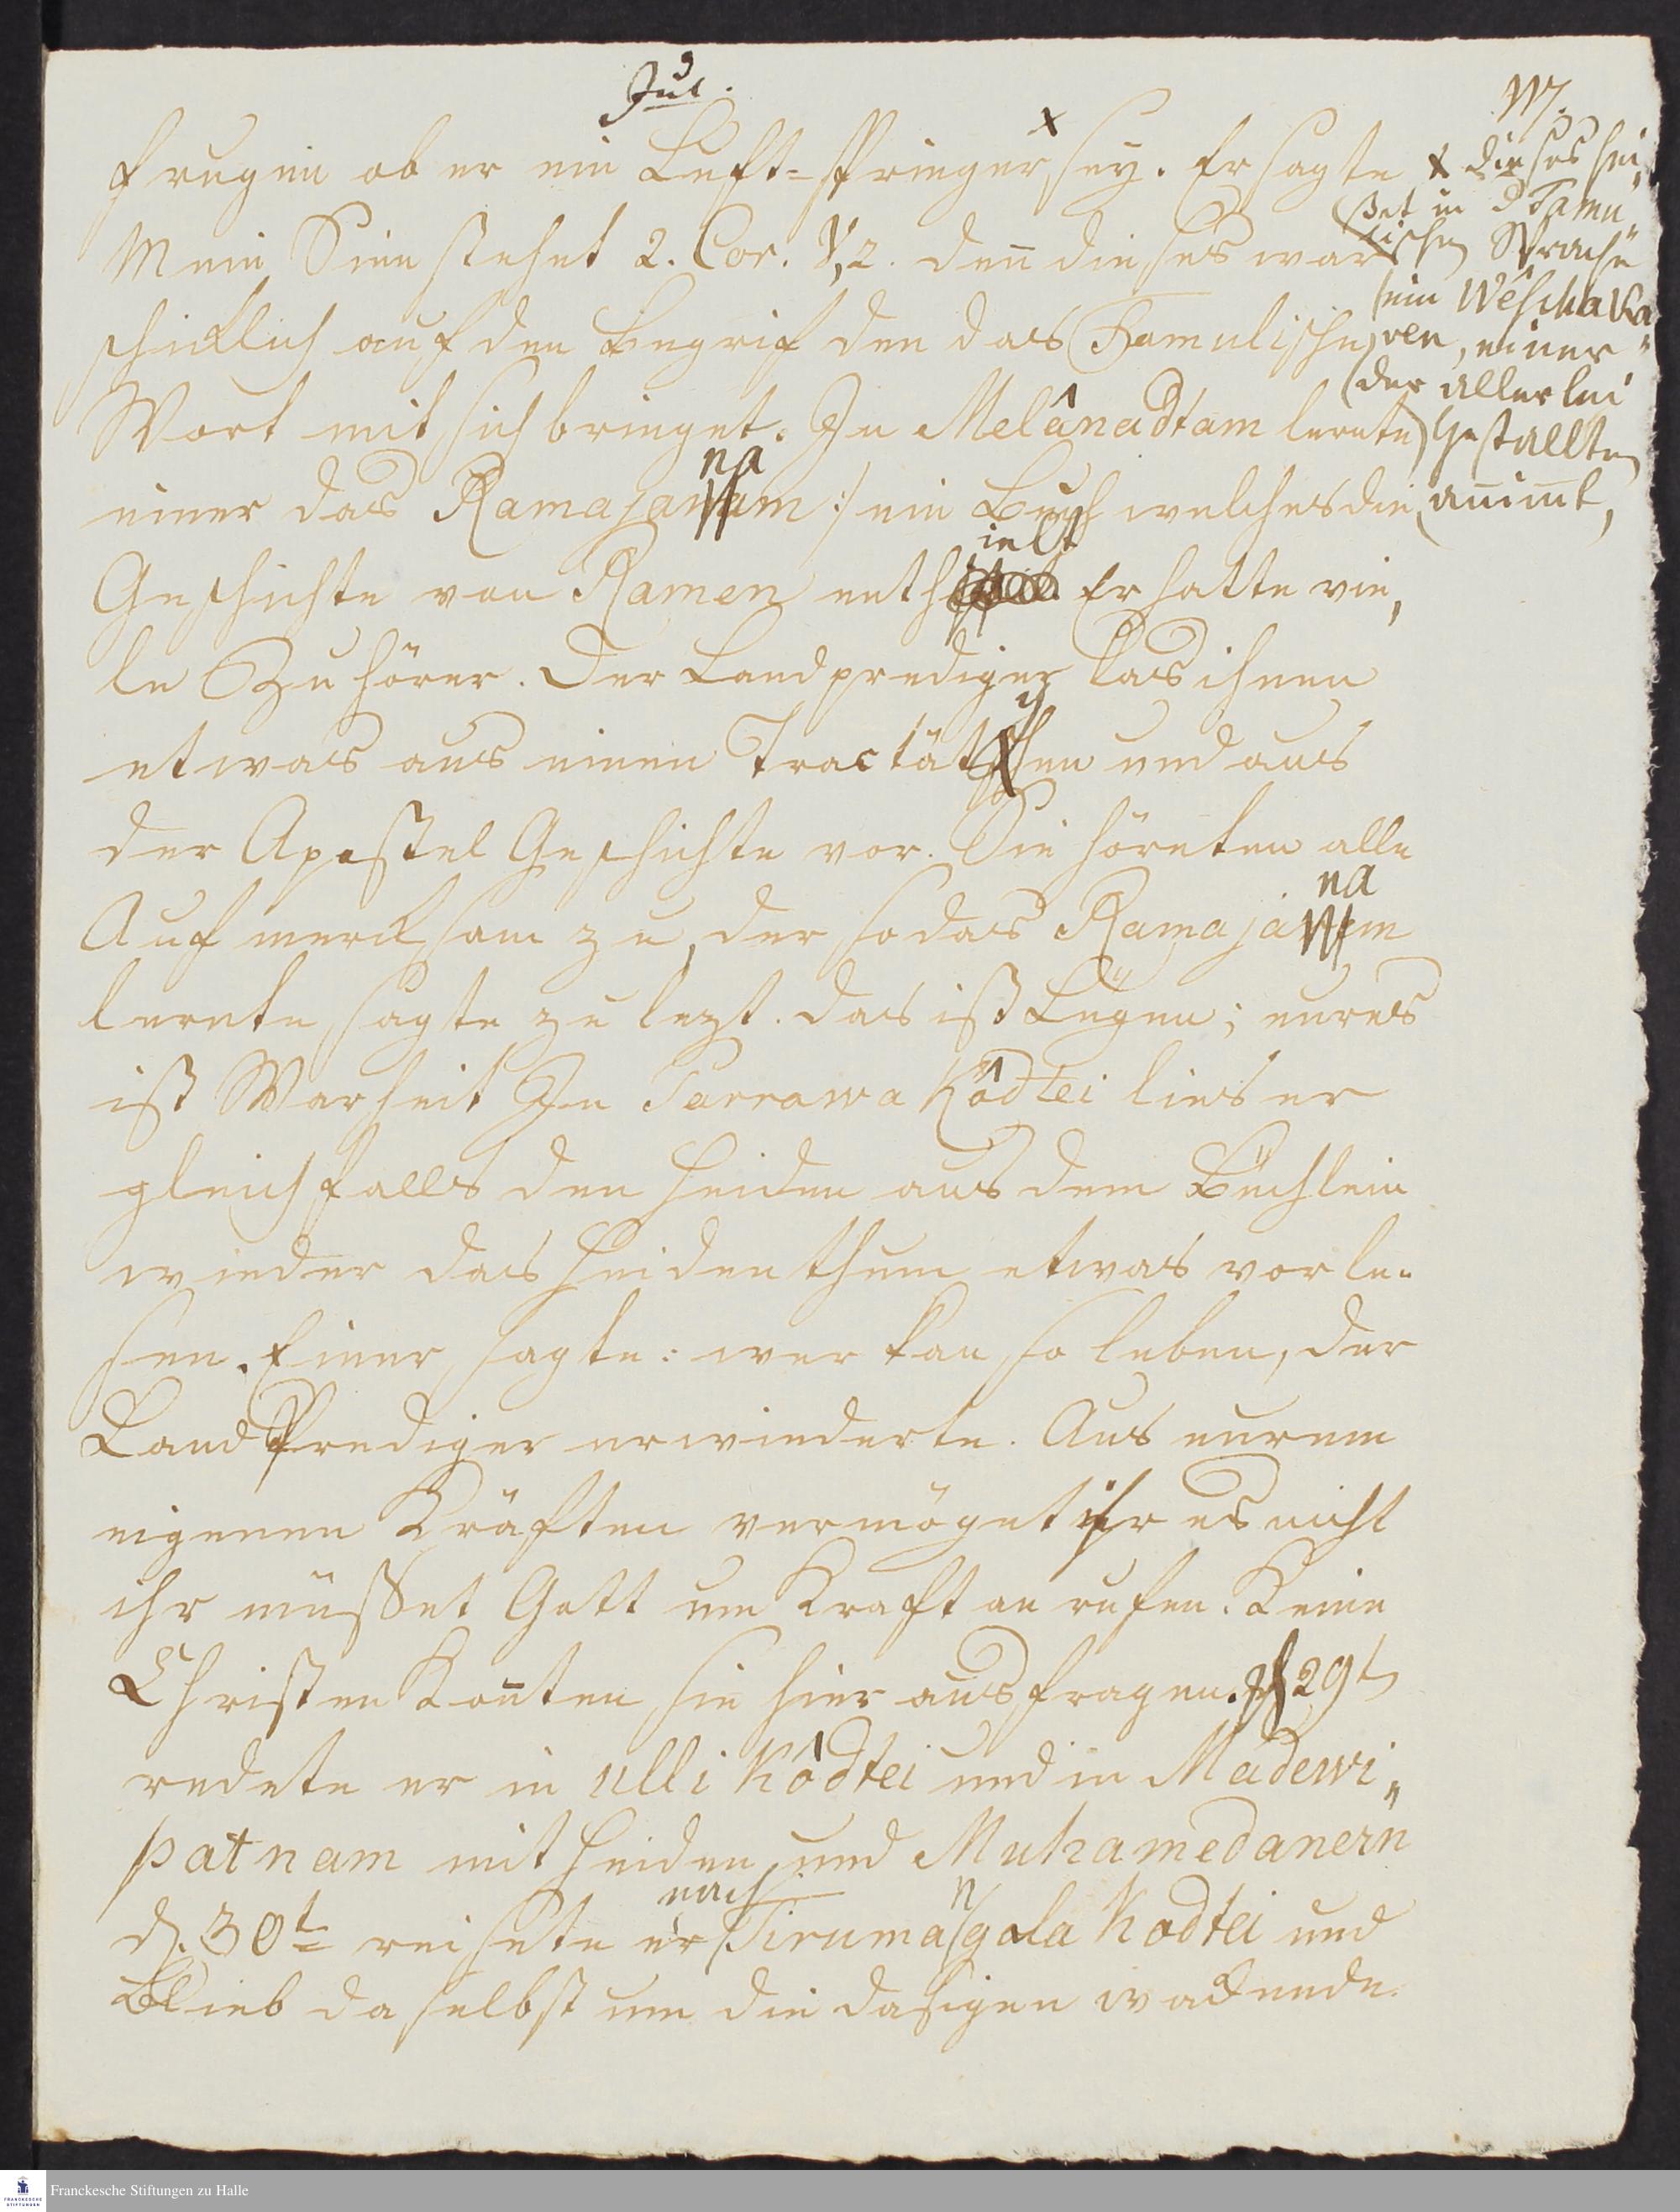 Jul.
frugen ob er ein Luft-Springer x sey. Er sagte
Mein Sinn stehet 2. Cor. V, 2. den̄ dieses war
schicklich auf den Begrif den das Tamulische
Wort mit sich bringet. In Melânadtam lernte
einer das Ramajanam :/ ein Buch welches die
Geschichte von Ramen enthielt Er hatte vie,
le Zuhörer. Der Landprediger las ihnen
etwas aus einem Tractätgen und aus
der Apostel Geschichte vor. Sie höreten alle
Aufmerksam zu, der so das Ramajanam
lernte sagte zu lezt. das ist Lügen; eures
ist Warheit In Parrawa Kôdtei lies er
gleichfalls den Heiden aus dem Büchlein
wieder das Heidenthum etwas vorle-
sen. Einer sagte: wer kan so leben, der
Land Prediger erwiederte. Aus eurem
eigenen Kräften vermöget ihr es nicht
ihr müsset Gott um Kraft an rufen. Keine
Christen Kon̄ten sie hier aus fragen. 29t
redete er in Ulli Kôdtei und in Madewi„
patnam mit Heiden und Muhamedanern
d. 30t reisete er nach Tirumangala Kodtei und
Blieb daselbst um die dasigen wackende
x dieses hei„
ßet in d Tamu„
lischen Sprache
ein Wêschaka„
ren, einer
der allerlei
Gestallten
an̄im̄t,
Franckesche Stiftungen zu Halle
FRANCKESCHE
STIFTUNGEN